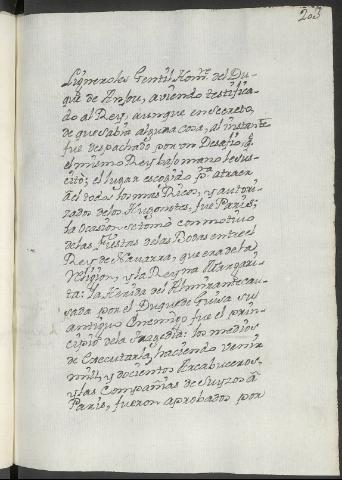 203
Ligneroles Gentil Hom.e del Du-
que de Anjou, aviendo testifica-
do al Rey, aunque en secreto,
de que sabia alguna cosa, al instante
fue despachado por un Desafio, q̃
el mismo Rey bajo mano le sus-
citò; el lugar escogido p.a atraer
à el todos los mas Ricos, y autori-
zados de los Hugonotes, fue Paris;
la ocasion se tomò con motivo
de las Fiestas de las Bodas entre el
Rey de Navarra, que era de la
Religion, y la Reyna Margari-
ta: la Herida del Almirante cau-
sada por el Duque de Guisa su
antiguo Enemigo fue el prin-
cipio de la Tragedia: los medios
de Executarla, haciendo venir
mil, y docientos Arcabuceros,
y las Compañias de Suyzos à
Paris, fueron aprobados por